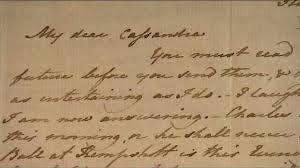 My dear Cassandra
You must read
future before you send them, &
as entertaining as I do. – I laugh
I am now answering. – Charles
this morning, or he shall never
Ball at Kempshott is this Even